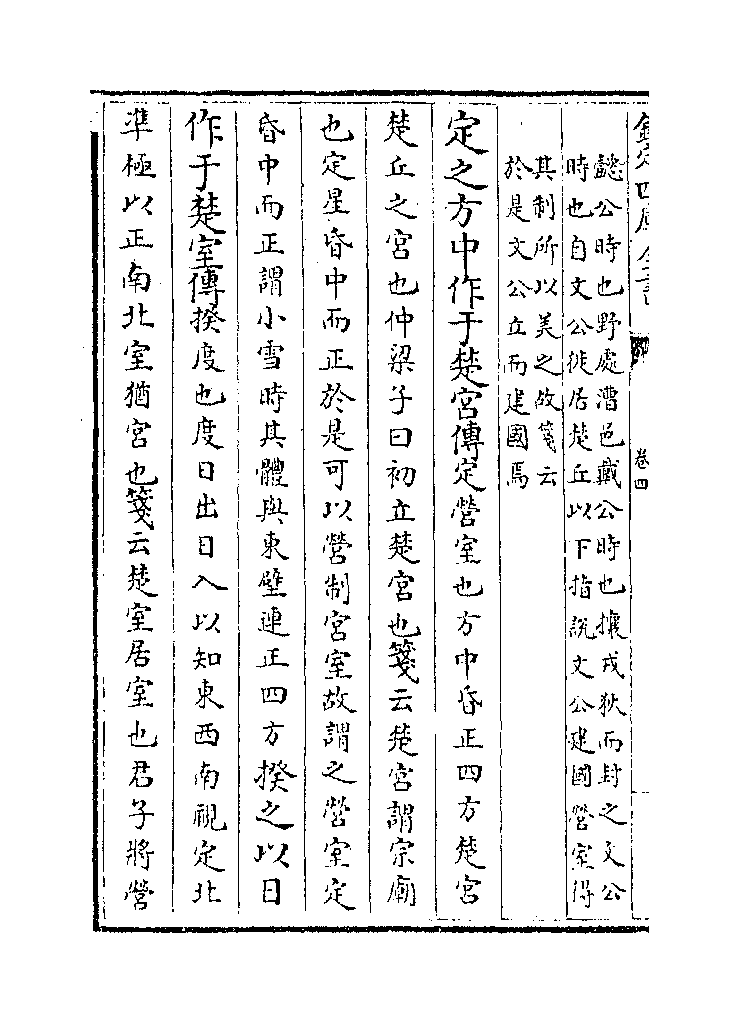 欽定四庫全書
卷四
懿公時也野處漕邑戴公時也攘戎狄而封之文公
時也自文公徙居楚丘以下指説文公建國營室得
其制所以美之故箋云
於是文公立而建國焉
定之方中作于楚宮傳定營室也方中昏正四方楚宮
楚丘之宮也仲梁子曰初立楚宮也箋云楚宮謂宗廟
也定星昏中而正於是可以營制宮室故謂之營室定
昏中而正謂小雪時其體與東壁連正四方揆之以日
作于楚室傳揆度也度日出日入以知東西南視定北
凖極以正南北室猶宮也箋云楚室居室也君子將營